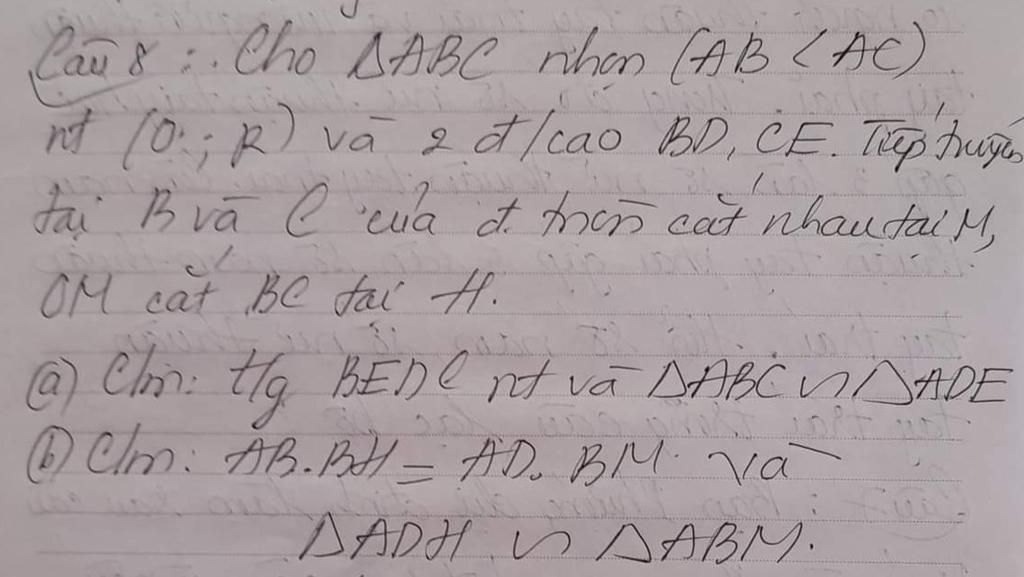 Câu 8 : Cho ΔABC nhọn (AB < AC)
nt (O ; R) và 2 đ/cao BD, CE. Tiếp tuyến
tại B và C của đ. tròn cắt nhau tại M,
OM cắt BC tại H.
(a) C/m: t/g BEDC nt và ΔABC ∽ ΔADE
(b) C/m: AB.BH = AD.BM và
ΔADH ∽ ΔABM.